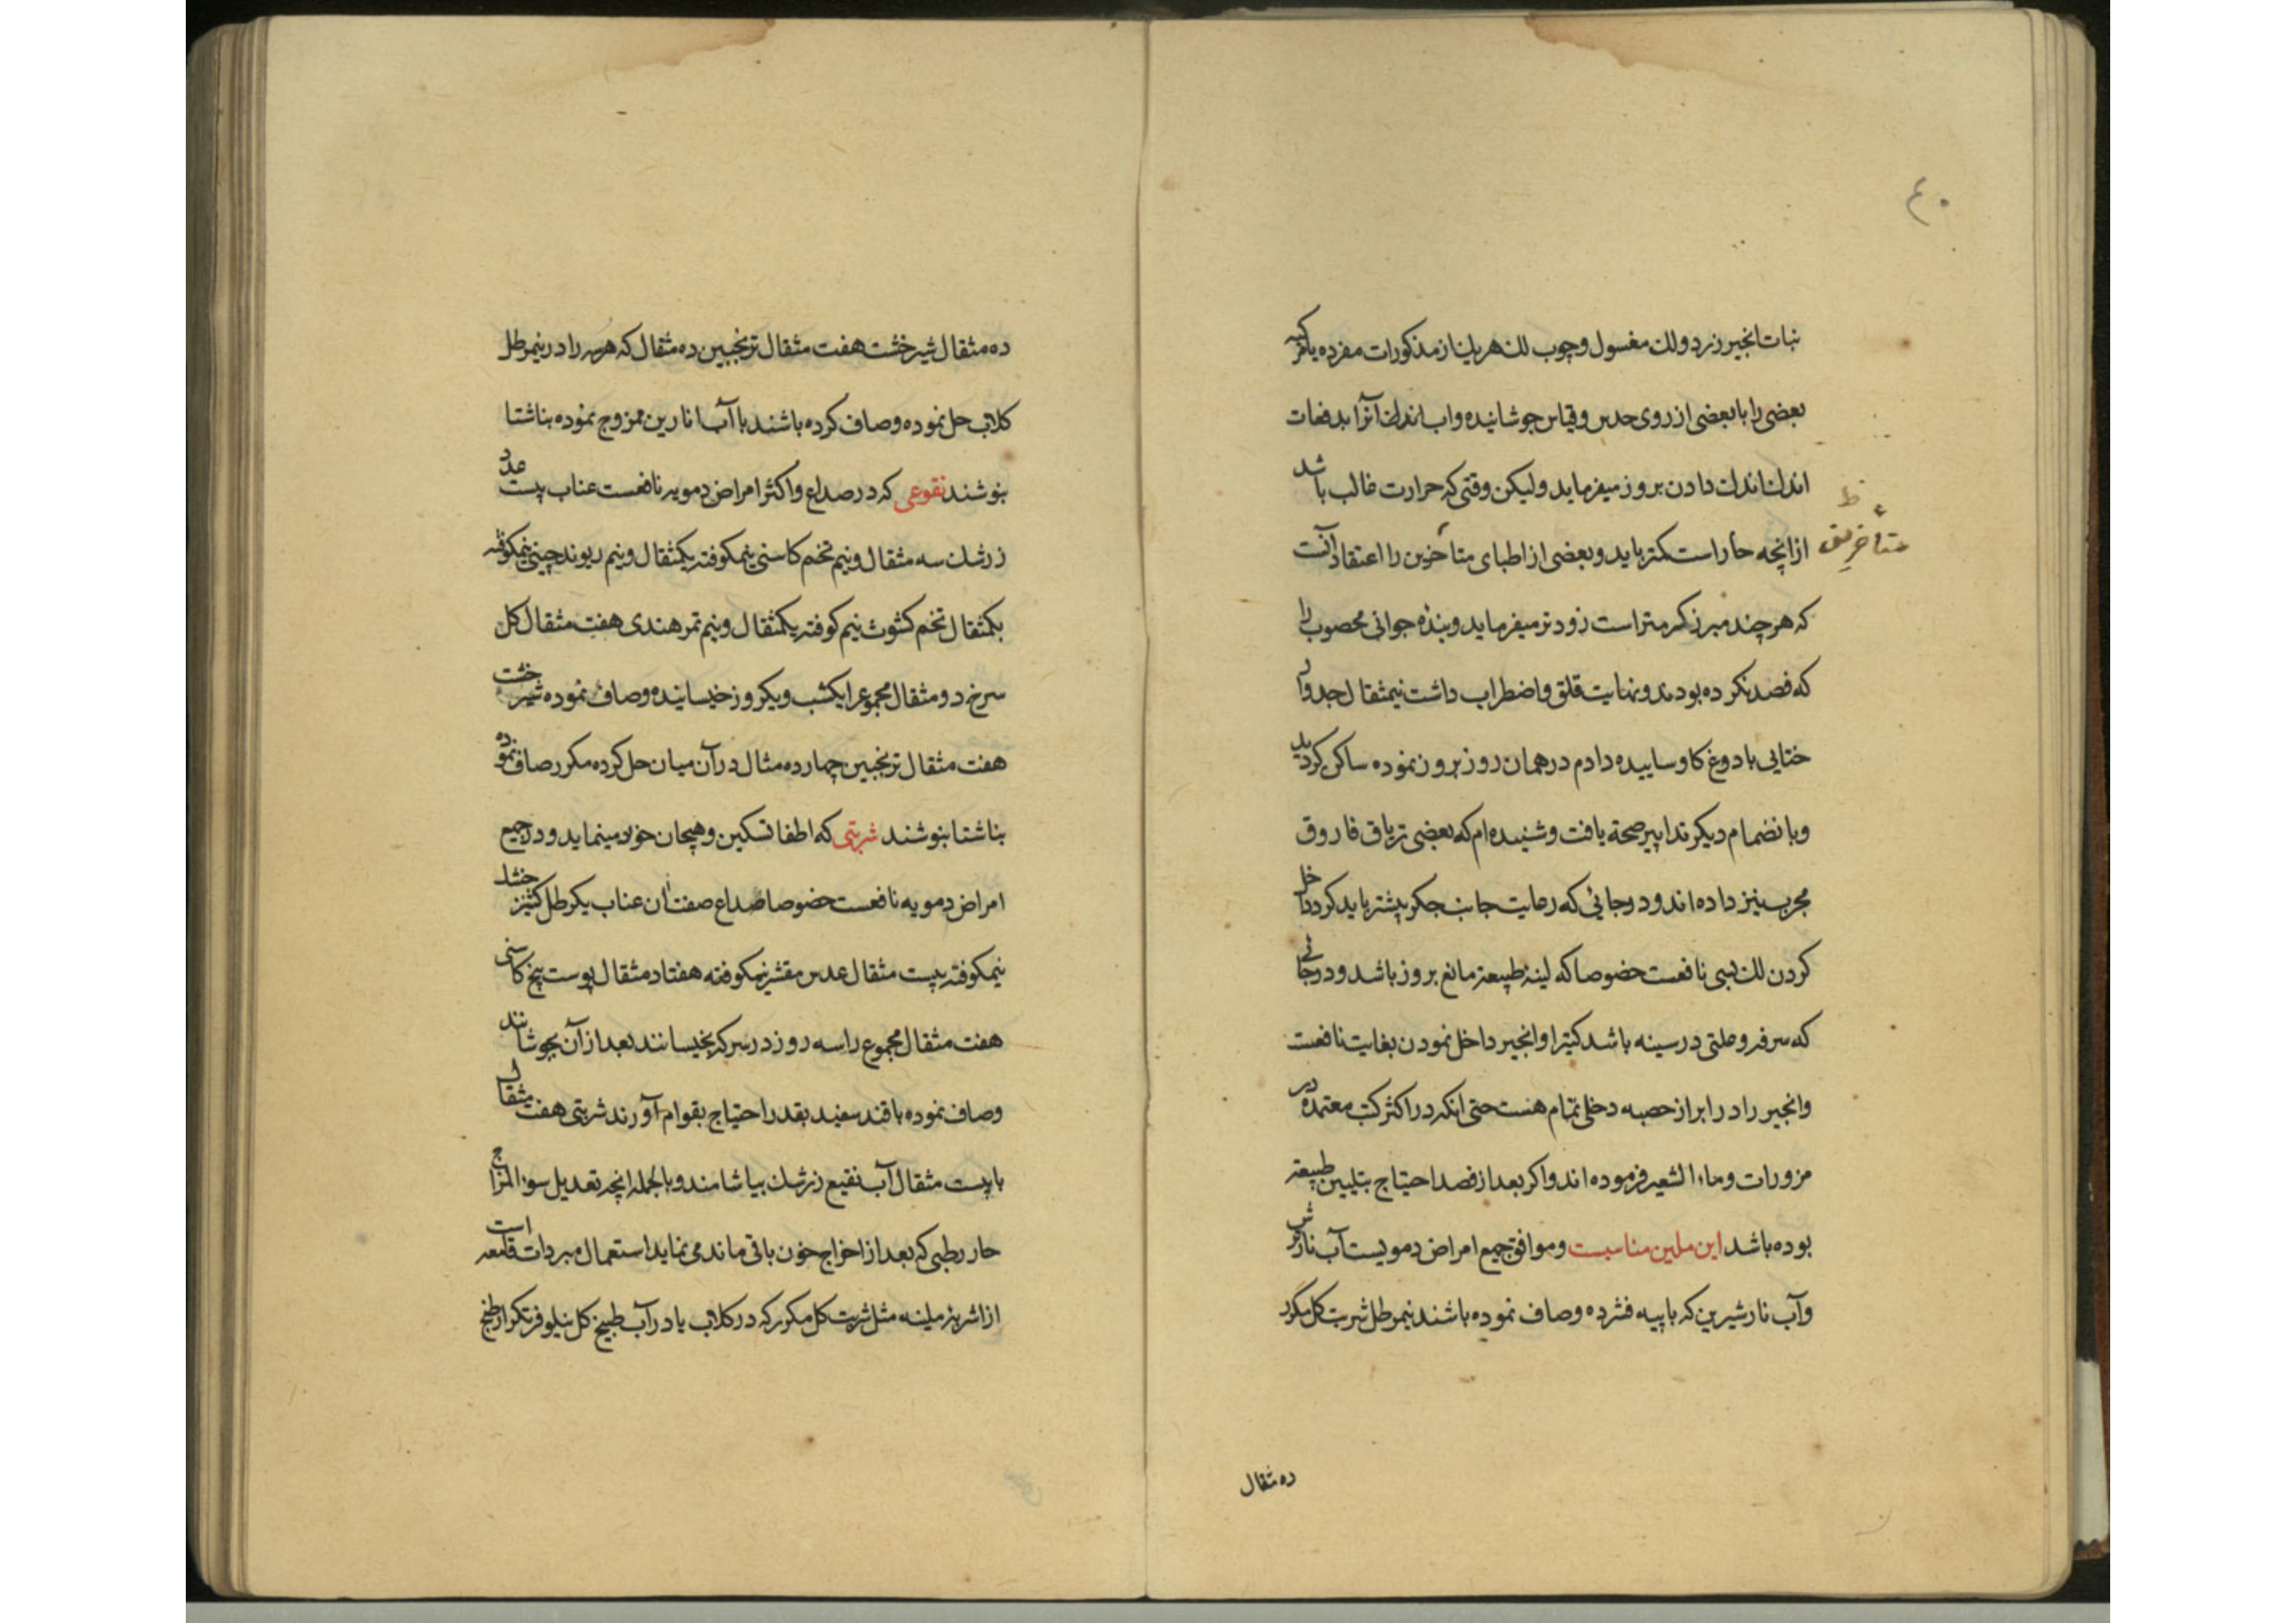 ۴۰
نبات انجیر زرد و لك مغسول و چوب لك هر یك از مذکورات مفرده یا مرکبه
بعضی را با بعضی از روی حدس و قیاس جوشانیده و اب اندك آنرا بدفعات
اندك اندك دادن بروز میفرماید ولیکن وقتی که حرارت غالب باشد
ازانچه حار است کمتر باید و بعضی از اطبای متأخرین را اعتقاد آنست
متأخرین ظ
که هر چند مبرز کرمتر است زودتر میفرماید و بنده جوانی محصوب را
که فصد نکرده بودند و نهایت قلق و اضطراب داشت نیمثقال جدوار
ختایی با دوغ کاو ساییده دادم در همان روز بروز نموده ساکن کردید
و بانضمام دیکر تدابیر صحة یافت و شنیده ام که بعضی تریاق فاروق
مجرب نیز داده اند و در جائی که رعایت جانب جکر بیشتر باید کرد داخل
کردن لك بسی نافعست خصوصا که لینة طبیعة مانع بروز باشد و در جائی
که سرفه و علتی در سینه باشد کتیرا و انجیر داخل نمودن بغایت نافعست
و انجیر را در ابراز حصبه دخلی تمام هست حتی انکه در اکثر کتب معتمده در
مزورات و ماء الشعیر فرموده اند و اکر بعد از فصد احتیاج بتلیین طبیعة
بوده باشد این ملین مناسبست و موافق جمیع امراض دمویست آب نار ترش
و آب نار شیرین که با پیه فشرده و صاف نموده باشند نیم رطل شربت کل مکرر
ده مثقال
ده مثقال شیر خشت هفت مثقال ترنجبین ده مثقال که هر سه را در نیم رطل
کلاب حل نموده و صاف کرده باشند با آب انارین ممزوج نموده بناشتا
بنوشند نقوعی که در صداع و اکثر امراض دمویه نافعست عناب بیست عدد
زرشك سه مثقال و نیم تخم کاسنی نیمکوفته یکمثقال و نیم ریوند چینی نیمکوفته
یکمثقال تخم کشوث نیم کوفته یکمثقال و نیم تمر هندی هفت مثقال کل
سرخ دو مثقال مجموع را یکشب و یکروز خیسانیده و صاف نموده شیر خشت
هفت مثقال ترنجبین چهارده مثال در آن میان حل کرده مکرر صاف نموده
بناشتا بنوشند شربتی که اطفا تسکین و هیجان خون مینماید و در جمیع
امراض دمویه نافعست خصوصا صداع صفت ان عناب یکرطل کشنیز خشك
نیمکوفته بیست مثقال عدس مقشر نیمکوفته هفتاد مثقال پوست بیخ کاسنی
هفت مثقال مجموع را سه روز در سرکه بخیسانند بعد از آن بجوشانند
و صاف نموده با قند سفید بقدر احتیاج بقوام آورند شربتی هفت مثقال
با بیست مثقال آب نقیع زرشك بیاشامند و بالجمله انچه تعدیل سوء المزاج
حار رطبی که بعد از اخراج خون باقی مانده می نماید استعمال مبردات قامعه است
از اشربه ملینه مثل شربت کل مکرر که در کلاب یا در آب طبیخ کل نیلوفر تکرار طبخ